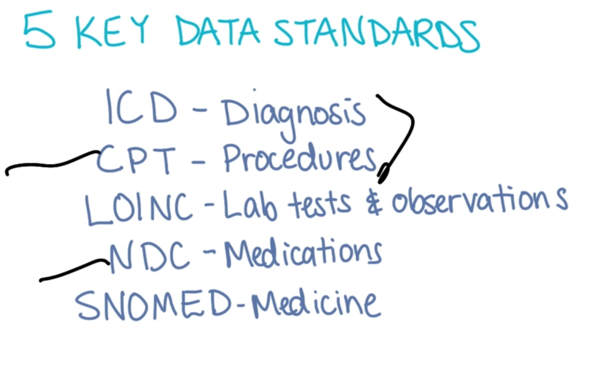 5 KEY DATA STANDARDS
ICD - Diagnosis
CPT - Procedures
LOINC - Lab tests & observations
NDC - Medications
SNOMED - Medicine